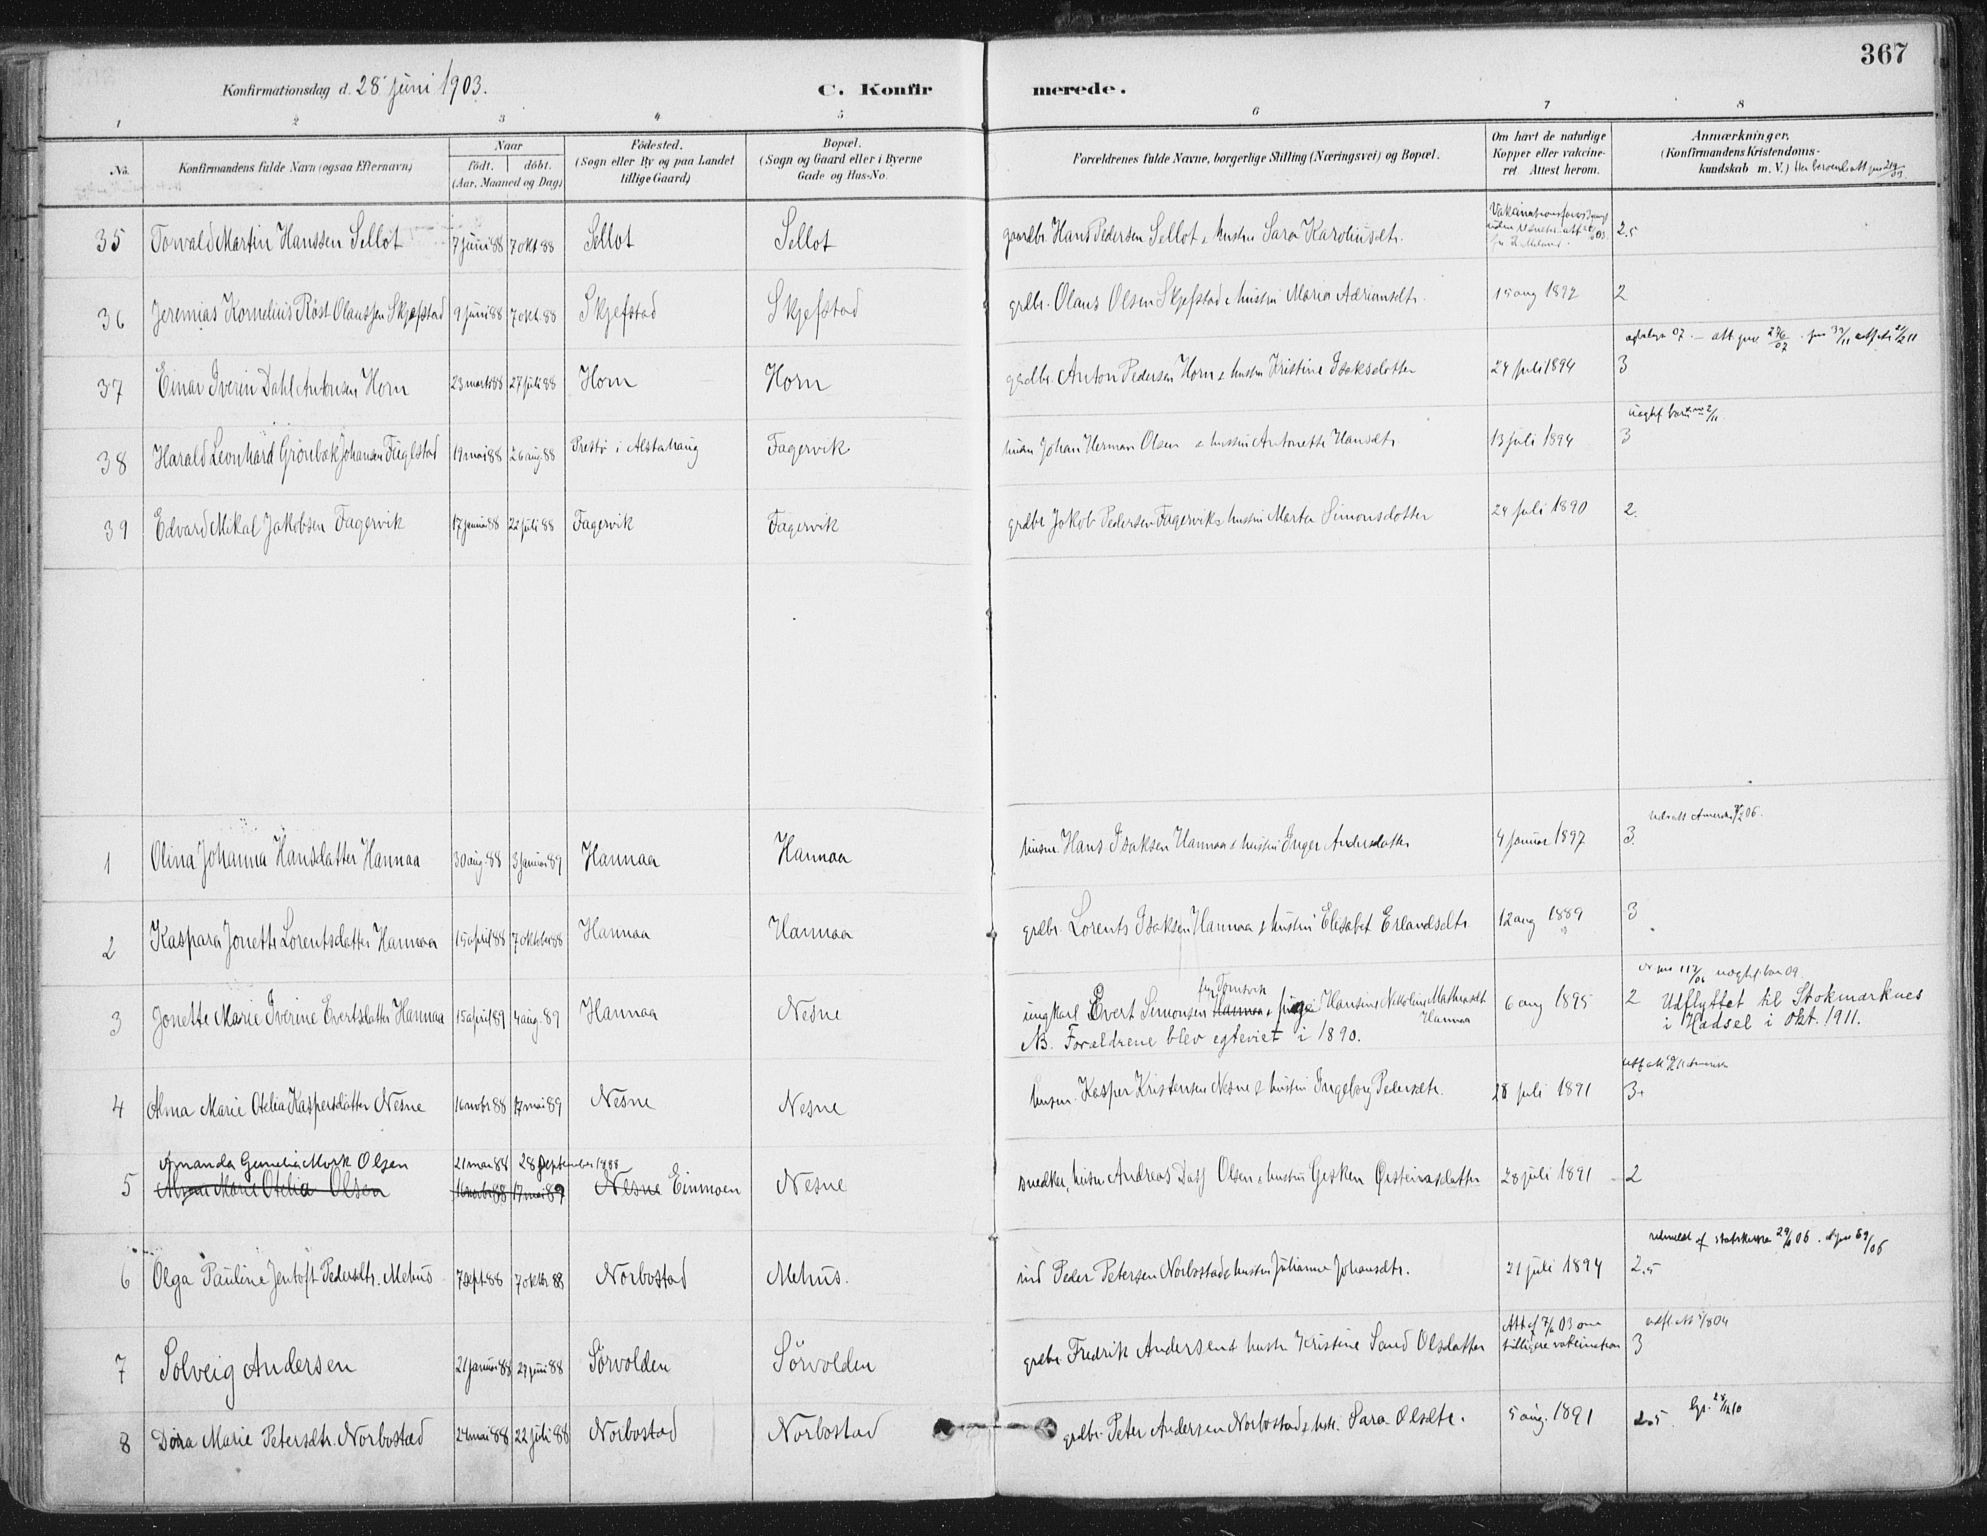 367
Konfirmationsdag d. 28 juni 1903. C. Konfirmerede.
1 2 3 4 5 6 7 8
No. Konfirmandens fulde Navn (ogsaa Efternavn) Naar födt. döbt. (Aar, Maaned og Dag) Födested. (Sogn eller By og paa Landet tillige Gaard) Bopæl. (Sogn og Gaard eller i Byerne Gade og Hus-No. Forældrenes fulde Navne, borgerlige Stilling (Næringsvei) og Bopæl. Om havt de naturlige Kopper eller vakcineret. Attest herom. Anmærkninger. (Konfirmandens Kristendomskundskab m. V.)
35 Torvald Martin Hanssen Sellot 7 juni 88 7 okt 88 Sellot Sellot gaardbr. Hans Pedersen Sellot & hustru Sara Karoliusdtr. 2.5
36 Jeremias Kornelius Röst Olaussen Skjefstad 9 juni 88 7 okt. 88 Skjefstad Skjefstad grdbr. Olaus Olsen Skjefstad & hustru Maria Adriansdtr. 15 aug 1892 2
37 Einar Iverin Dahl Antonsen Horn 23 marts 88 27 juli 88 Horn Horn grdbr. Anton Pedersen Horn & hustru Kristine Isaksdatter 24 juli 1894 3
38 Harald Leonhard Grönbæk Johansen Fuglstad 19 mai 88 26 aug. 88 Prestö i Alstahaug Fagervik husm Johan Herman Olsen & hustru Antonette Hansdtr. 13 juli 1894 3
39 Edvard Mikal Jakobsen Fagervik 17 januar 88 22 juli 88 Fagervik Fagervik grdbr Jakob Pedersen Fagervik & hustru Marta Simonsdatter 24 juli 1890 2.
1 Olina Johanna Hansdatter Hannaa 30 aug. 88 3 januar 89 Hannaa Hannaa husm. Hans Isaksen Hannaa & hustru Inger Andersdatter 4 januar 1897 3.
2 Kaspara Jonette Lorentsdatter Hannaa 15 april 88 7 oktober 88 Hannaa Hannaa grdbr. Lorents Isaksen Hannaa & hustru Elisabet Erlandsdtr. 12 aug 1889 3
Tomsvik
3 Jonette Marie Iverine Evertsdatter Hannaa 15 april 89 4 aug. 89 Hannaa Nesne ungkarl Evert Simonsen Hannaa & pige Hansine Nikoline Mathiasdtr Hannaa 6 aug 1895 2 Udflyttet til Stokmarknes
NB. Forældrene blev egteviet i 1890. i Hadsel i Okt. 1911.
4 Alma Marie Otelia Kaspersdatter Nesne 16 novbr 88 17 mai 89 Nesne Nesne husm. Kasper Kristensen Nesne & hustru Ingeborg Pedersdtr. 28 juli 1891 3+
Amanda Gunelia Mork Olsen 21 mai 88 28 september 1888
5 Alma Marie Otelia Olsen 16 novbr 88 17 mai 89 Nesne Einmoen Nesne snedker, Andreas Olsen & hustru Gjesken Öisteinsdatter 28 juli 1891 2
6 Olga Pauline Jentoft Pedersdtr. Mehus 7 sept 88 7 oktbr 88 Norbostad Mehus. ind Peder Petersen Norbostad & hustru Julianne Johansdtr. 21 juli 1894 2.5
7 Solveig Andersen 21 januar 88 29 juni 88 Sörvolden Sörvolden grdbr Fredrik Andersen & hustr Kristine Sand Olsdatter Att af 7/6 03 om tidligere vakcination 3
8 Dora Marie Petersdtr. Norbostad 24 mai 88 22 juli 88 Norbostad Norbostad grdbr. Peter Andersen Norbostad & hstr. Sara Olsdtr. 5 aug. 1891 2.5